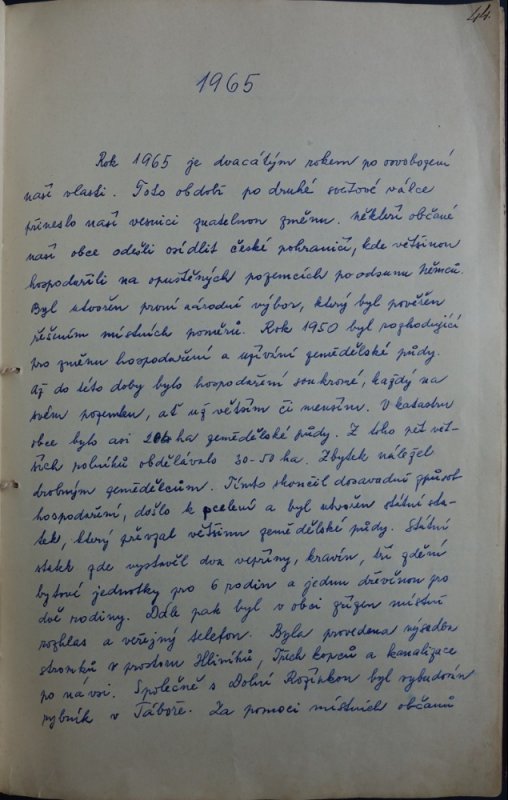 44.
1965
Rok 1965 je dvacátým rokem po osvobození
naší vlasti. Toto období po druhé světové válce
přineslo naší vesnici znatelnou změnu. Někteří občané
naší obce odešli osídlit české pohraničí, kde většinou
hospodařili na opuštěných pozemcích po odsunu Němců.
Byl utvořen první národní výbor, který byl pověřen
řešením místních poměrů. Rok 1950 byl rozhodující
pro změnu hospodaření a užívání zemědělské půdy.
Až do této doby bylo hospodaření soukromé, každý na
svém pozemku, ať už větším či menším. V katastru
obce bylo asi ha zemědělské půdy. Z toho pět vět-
ších rolníků obdělávalo 30-50 ha. Zbytek náležel
drobným zemědělcům. Tímto skončil dosavadní způsob
hospodaření, došlo k scelení a byl utvořen státní sta-
tek, který převzal většinu zemědělské půdy. Státní
statek zde vystavěl dva vepříny, kravín, tři zděné
bytové jednotky pro 6 rodin a jednu dřevěnou pro
dvě rodiny. Dále pak byl v obci zřízen místní
rozhlas a veřejný telefon. Byla provedena výsadba
stromků v prostoru Hliníků, Třech kopců a kanalizace
po návsi. Společně s Dolní Rožínkou byl vybudován
rybník v Táboře. Za pomoci místních občanů